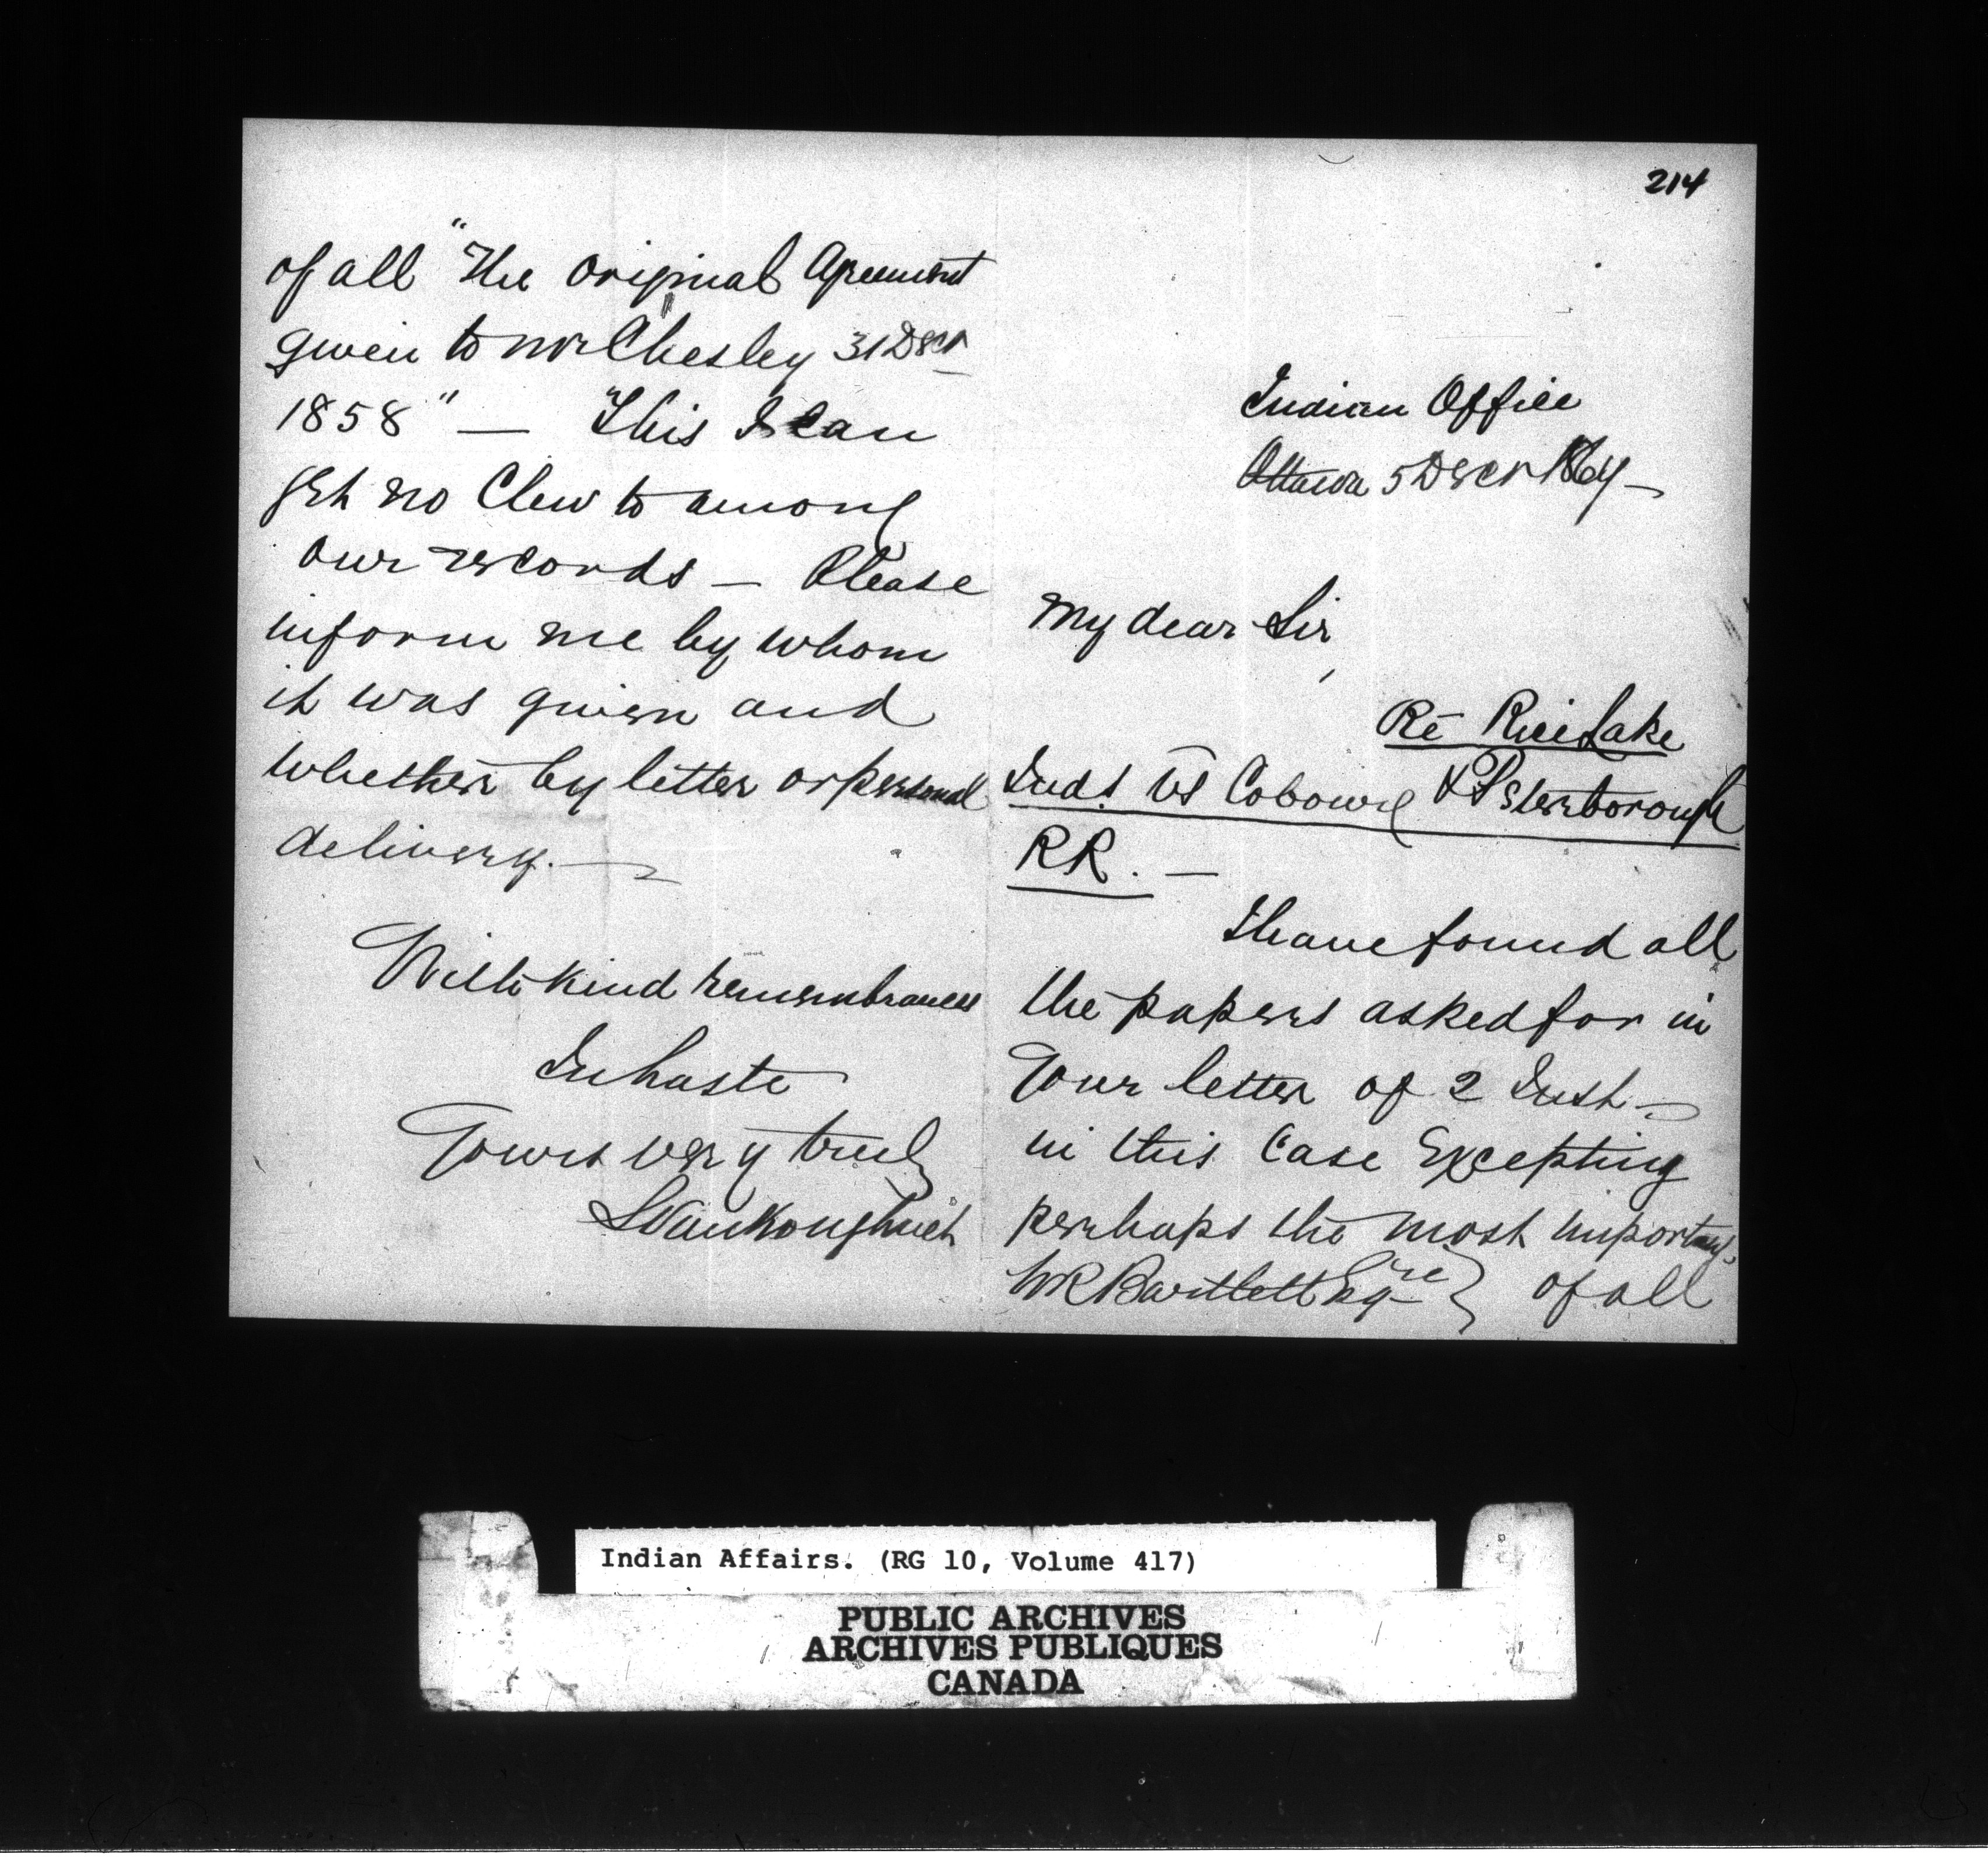 214
Indian Office
Ottawa 5 Decr 1864 —
My dear Sir,
Re Rice Lake
Inds. vs Cobourg & Peterborough
RR. —
I have found all
the papers asked for in
Your letter of 2 Inst —
in this Case Excepting
perhaps the most important
W R Bartlett Esqre } of all
of all "The Original Agreement
given to Mr Chesley 31 Decr
1858" — This I can
get no Clew to among
our records — Please
inform me by whom
it was given and
whether by letter or personal
delivery. —
With kind remembrances
In haste
Yours very truly
L VanKoughnet
Indian Affairs. (RG 10, Volume 417)
PUBLIC ARCHIVES
ARCHIVES PUBLIQUES
CANADA